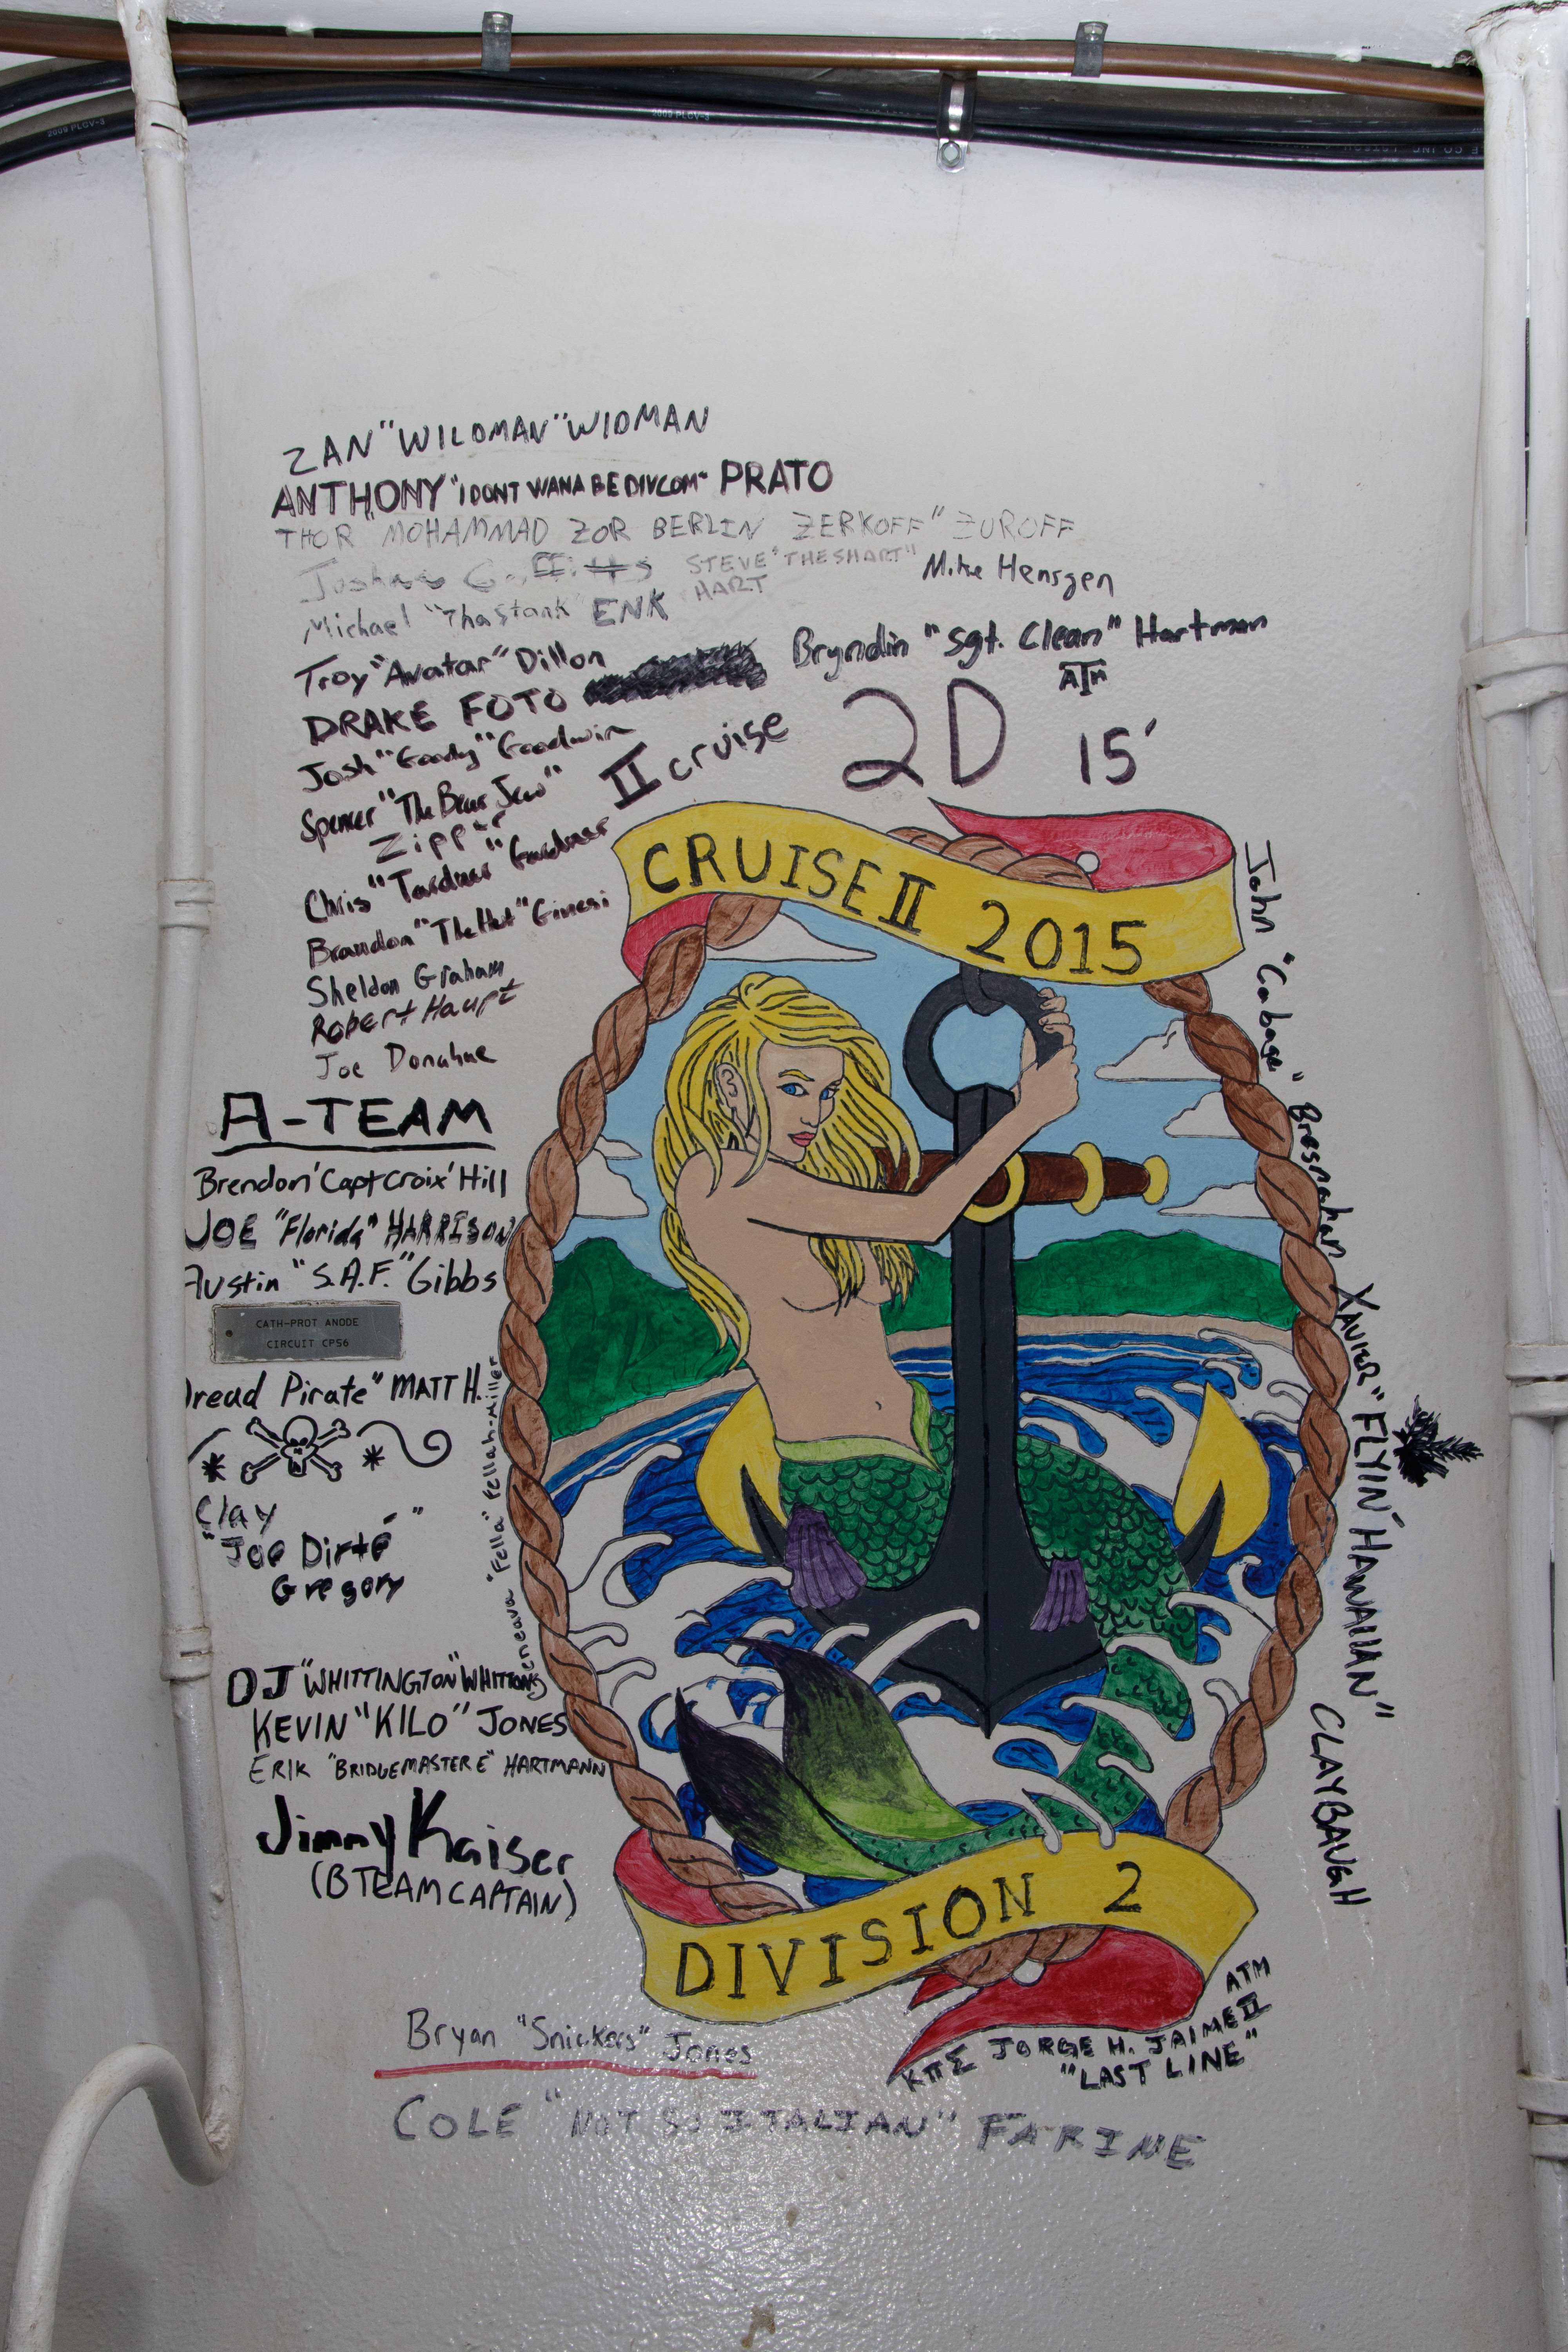 2009 PLCV-3
2009 PLCV-3
ZAN "WILDMAN" WIDMAN
ANTHONY "I DONT WANA BE DIVCOM" PRATO
THOR "MOHAMMAD ZOR BERLIN ZERKOFF" ZUROFF
STEVE "THESHART"
HART
Mike Hensgen
Michael "ThaStank" ENK
Troy "Avatar" Dillon
Bryndin "Sgt. Clean" Hartman
ATM
DRAKE FOTO
Josh "Goody" Goodwin
II cruise
2D
15'
Spencer "The Bear Jew"
Zipper
Chris "Tardner" Gardner
Brandon "TheHut" Ginesi
Sheldon Graham
Robert Haupt
Joe Donahue
CRUISE II 2015
A-TEAM
Brendon 'Capt Croix' Hill
JOE "Florida" HARRISON
Austin "S.A.F." Gibbs
CATH-PROT ANODE
CIRCUIT CPS6
Dread Pirate" MATT H.
Clay
"Joe Dirté"
Gregory
"Fella" Fellah-Miller
DJ "WHITTINGTON" WHITTONS
KEVIN "KILO" JONES
ERIK "BRIDGEMASTER E" HARTMANN
Jimmy Kaiser
(B TEAM CAPTAIN)
John "Cabage" Bresnahan
XAVIER "FLYIN' HAWAIIAN" CLAYBAUGH
DIVISION 2
ATM
ΚΠΣ JORGE H. JAIME II
"LAST LINE"
Bryan "Snickers" Jones
COLE "NOT SO ITALIAN" FARINE